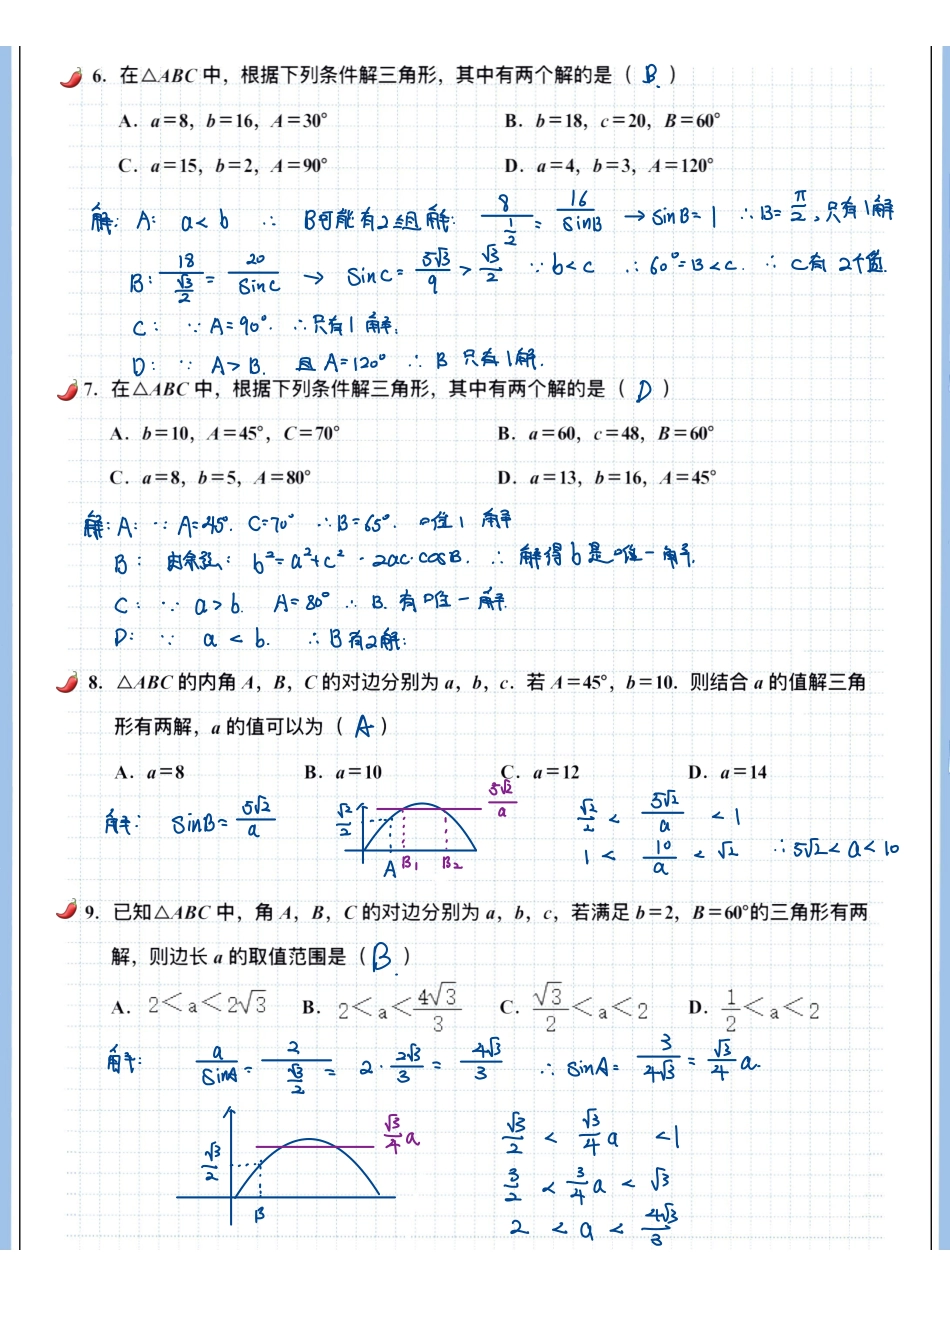 6. 在△ABC 中，根据下列条件解三角形，其中有两个解的是（ B ）
A. a＝8，b＝16，A＝30° B. b＝18，c＝20，B＝60°
C. a＝15，b＝2，A＝90° D. a＝4，b＝3，A＝120°
解: A: a<b ∴ B可能有2组解: 8/(1/2) = 16/sinB → sinB=1 ∴B=π/2，只有1解
B: 18/(√3/2) = 20/sinC → sinC= 5√3/9 > √3/2 ∵ b<c ∴ 60°=B<C. ∴ C有 2个值.
C: ∵ A=90°. ∴只有1解;
D: ∵ A>B. 且 A=120° ∴ B 只有1解.
7. 在△ABC 中，根据下列条件解三角形，其中有两个解的是（ D ）
A. b＝10，A＝45°，C＝70° B. a＝60，c＝48，B＝60°
C. a＝8，b＝5，A＝80° D. a＝13，b＝16，A＝45°
解: A: ∵ A=45°. C=70° ∴B=65°. 唯1解
B: 由余弦: b²=a²+c²-2ac·cosB. ∴ 解得b是唯一解.
C: ∵ a>b. A=80° ∴ B.有唯一解.
D: ∵ a<b. ∴B有2解:
8. △ABC 的内角 A，B，C 的对边分别为 a，b，c．若 A＝45°，b＝10．则结合 a 的值解三角
形有两解，a 的值可以为（ A ）
A. a＝8 B. a＝10 C. a＝12 D. a＝14
解: sinB= 5√2/a √2/2 5√2/a √2/2 < 5√2/a < 1
A B₁ B₂ 1 < 10/a < √2 ∴5√2<a<10
9. 已知△ABC 中，角 A，B，C 的对边分别为 a，b，c，若满足 b＝2，B＝60°的三角形有两
解，则边长 a 的取值范围是（ B. ）
A. 2＜a＜2√3 B. 2＜a＜4√3/3 C. √3/2＜a＜2 D. 1/2＜a＜2
解: a/sinA = 2/(√3/2) = 2·2√3/3 = 4√3/3 ∴ sinA= 3/4√3 = √3/4 a.
√3/2 √3/4 a √3/2 < √3/4 a <1
3/2 < 3/4 a < √3
B 2 < a < 4√3/3